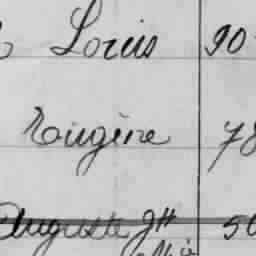 Louis 90
Eugène 78
Auguste Jh 50